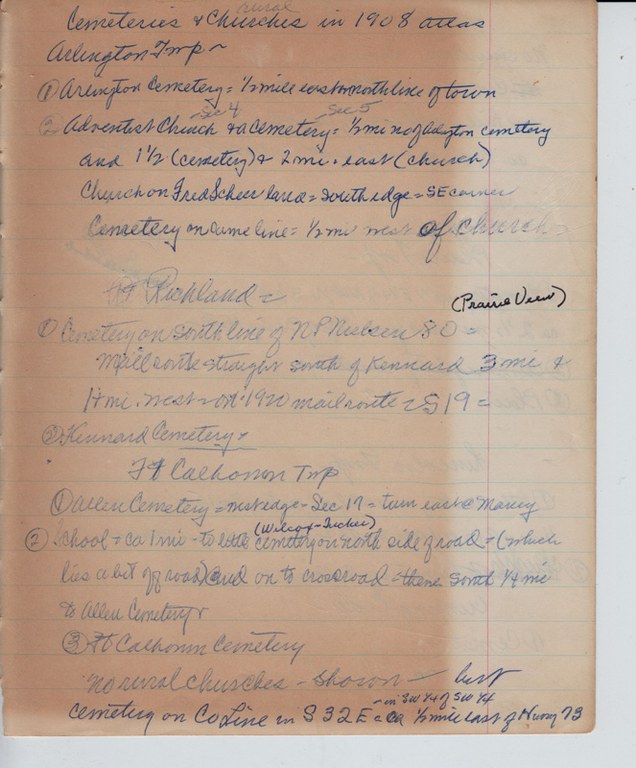 rural
Cemeteries & Churches in 1908 atlas
Arlington Twp ~
① Arlington Cemetery = ½ mile east on north line of town
Sec 4 Sec 5
② Adventist Church & a Cemetery = ½ mi no of Arlington cemetery
and 1½ (cemetery) & 2 mi. east (church)
Church on Fred Scheer land = south edge = SE corner
Cemetery on same line = ½ mi west of church =
Richland =
(Prairie View)
① Cemetery on south line of N P Nielsen 80 =
Mail route straight south of Kennard 3 mi &
mi. west on 1920 mail route = S 19 =
② Kennard Cemetery
Ft Calhoun Twp
① Allen Cemetery = west edge - Sec 17 = turn east @ Massey
(Wilcox-Tucker)
② School = ca 1 mi - to little cemetery on north side of road = (which
lies a bit off road) and on to crossroad = thence south ¼ mi
to Allen Cemetery
③ Ft Calhoun Cemetery
no rural churches - shown - but
- on SW ¼ of SW ¼
cemetery on Co Line in S 32 E = ca ½ mile east of Hiway 73